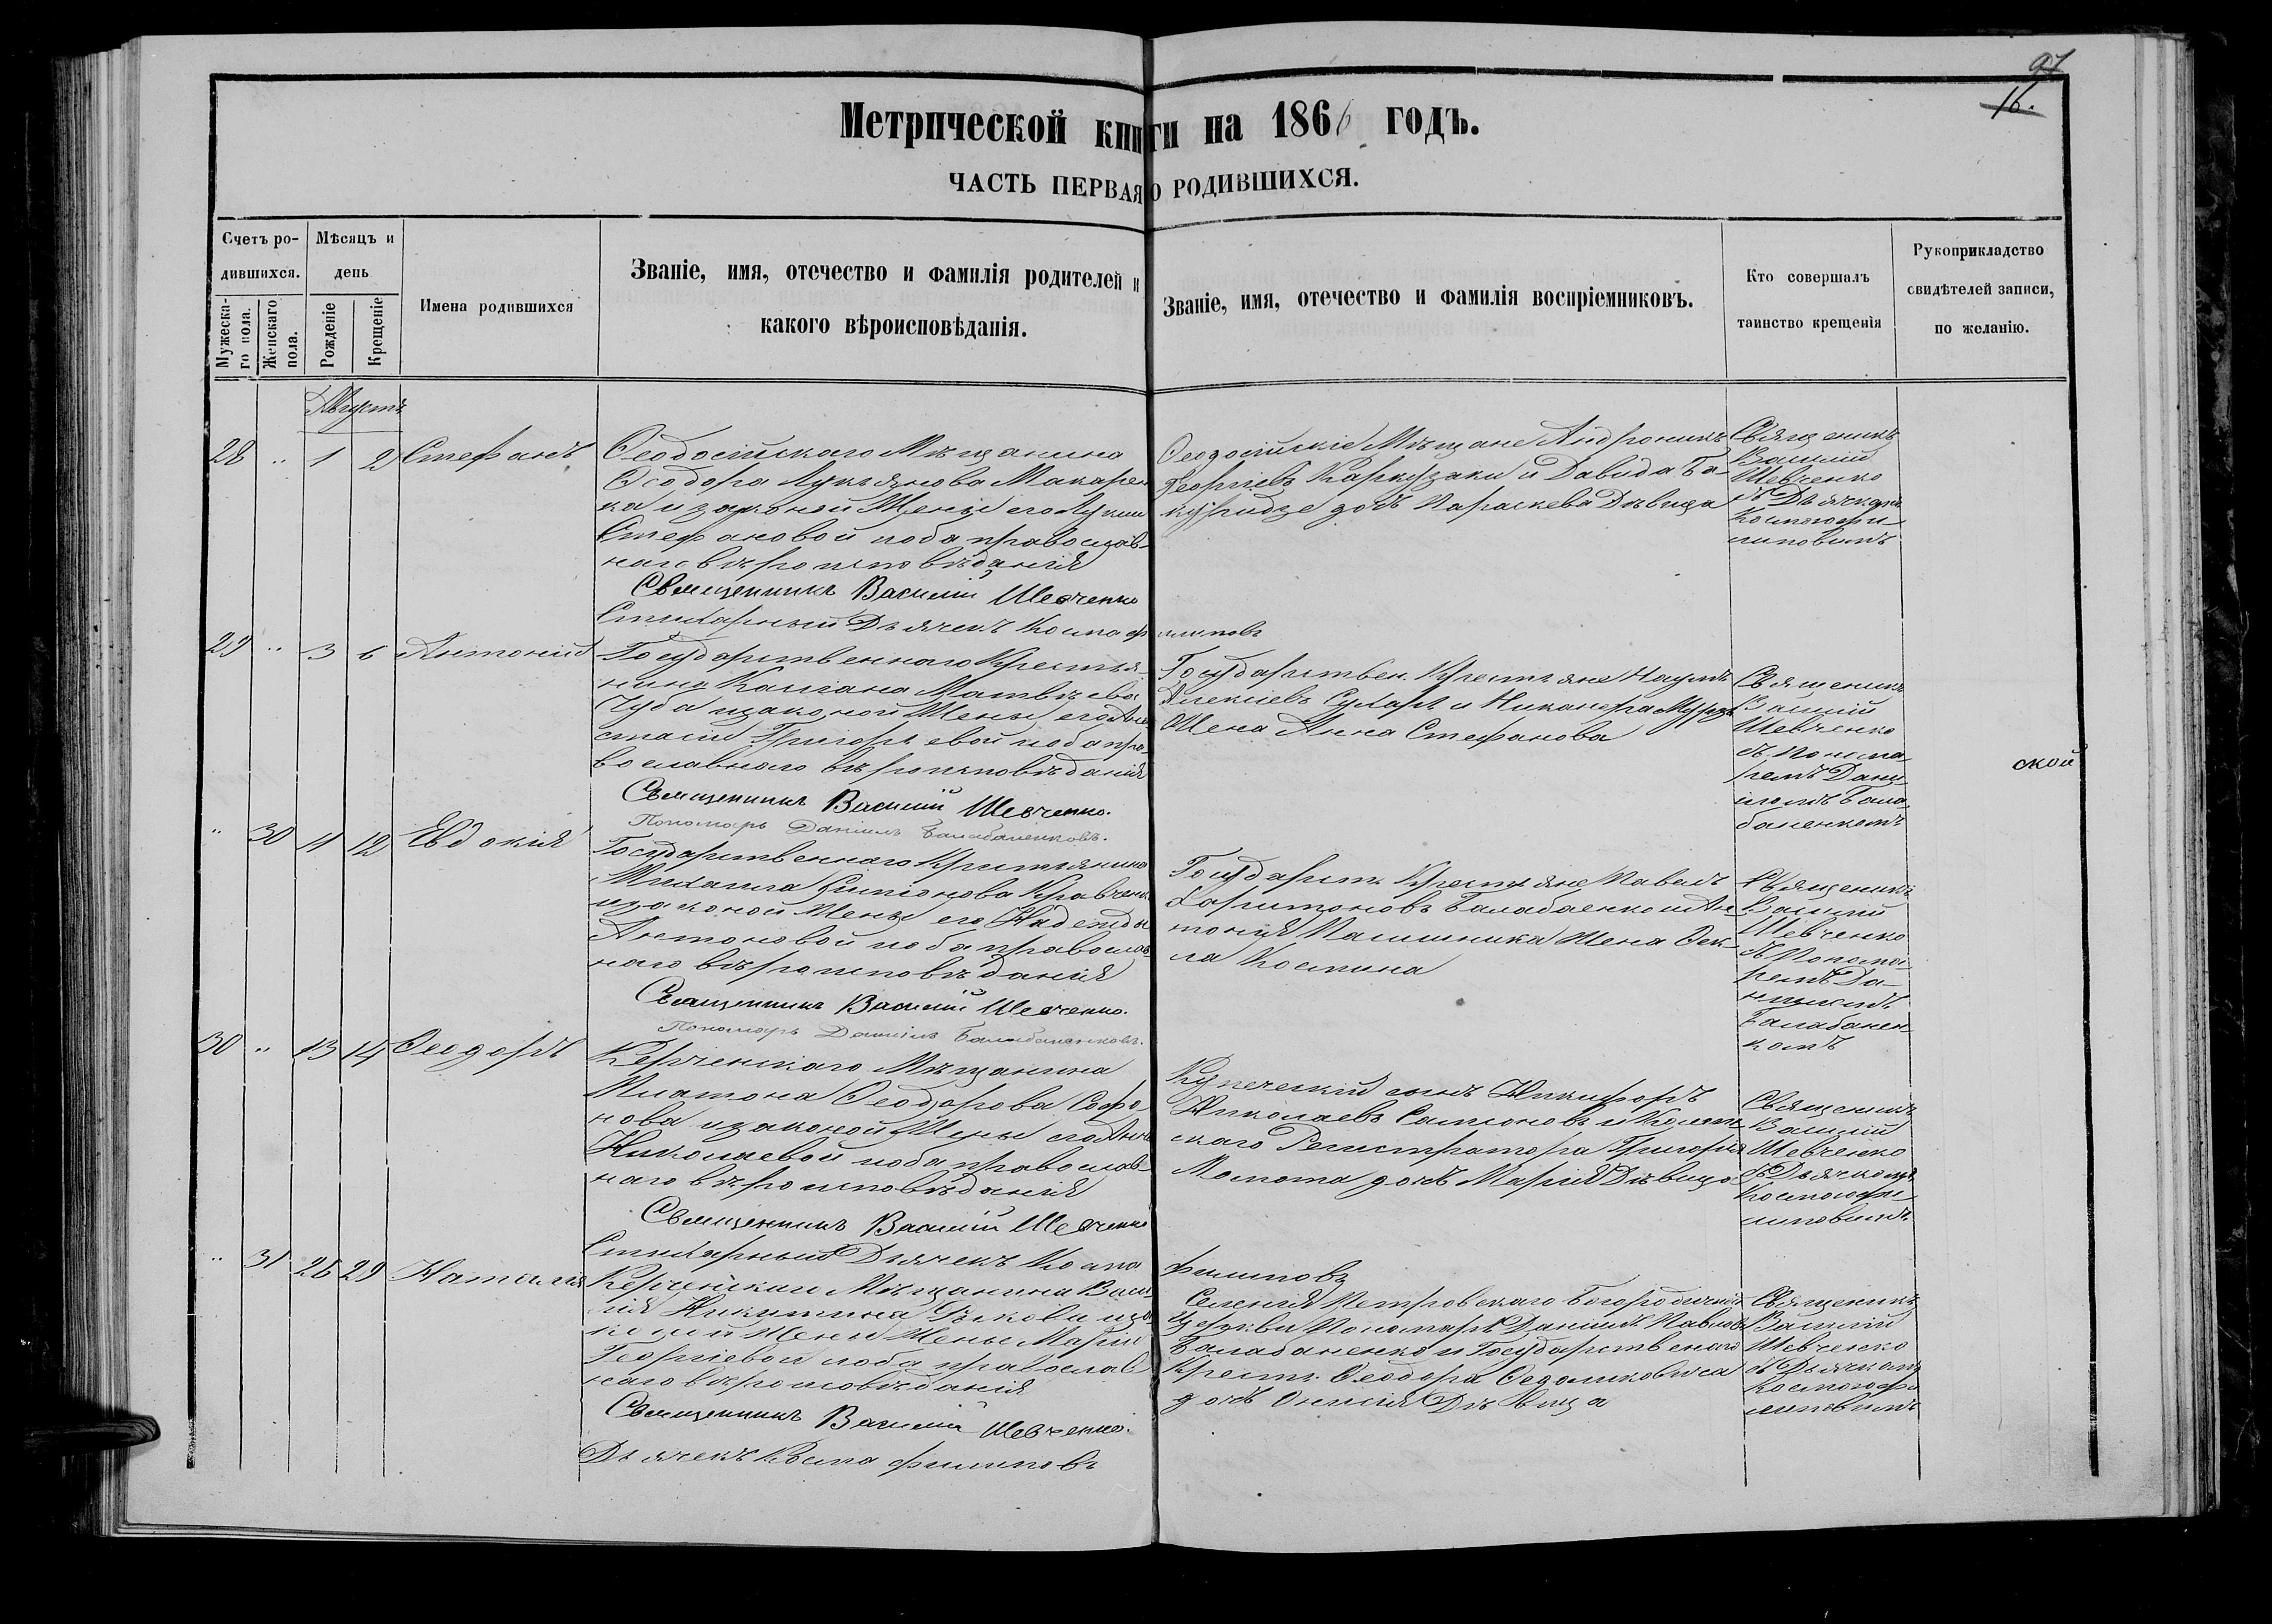 97
16.
Метрической книги на 1866 годъ.
ЧАСТЬ ПЕРВАЯ О РОДИВШИХСЯ.
Счетъ ро-
дившихся.
Мужеска-
го пола.
Женскаго
пола.
Мѣсяцъ и
день
Рожденіе
Крещеніе
Имена родившихся
Званіе, имя, отечество и фамилія родителей и
какого вѣроисповѣданія.
Званіе, имя, отечество и фамилія воспріемниковъ.
Кто совершалъ
таинство крещенія
Рукоприкладство
свидѣтелей записи,
по желанію.
Августъ
28 " 1 2 Стефанъ
Ѳеодосійскаго Мѣщанина
Ѳеодора Лукьянова Макарен
ка и законой Жены его
Стефановой оба православ-
наго вѣроисповѣданія
Священникъ Василій Шевченко
Стихарный Дьячекъ Косма Филиповъ
Ѳеодосійскіе Мѣщане Андроникъ
Георгіевъ и Давида
дочь Параскева Дѣвица
Священикъ
Василій
Шевченко
съ Дьячкомъ
Космою Фи-
липовымъ
29 " 3 6 Антоній
Государственнаго Крестья-
нина Матвѣева
Чуба и законой Жены его Ана
стасіи Григорьевой оба пра-
вославнаго вѣроисповѣданія
Священникъ Василій Шевченко.
Пономарь Даніилъ Балабаненковъ.
Государствен. Крестьяне Наумъ
Алексіевъ и Никанора
Жена Анна Стефанова
Священикъ
Василій
Шевченко
съ Понома-
ремъ Дани-
иломъ Бала-
баненкомъ
ской
" 30 11 12 Евдокія
Государственнаго Крестьянина
Михаила Симіонова Кравченк
и законой Жены его Надежды
Антоновой оба православ-
наго вѣроисповѣданія
Священникъ Василій Шевченко.
Пономарь Даніилъ Балабаненковъ.
Государст. Крестьяне Павелъ
Харитоновъ и Ан-
тонія Жена Ѳек-
ла Космина
Священикъ
Василій
Шевченко
съ Понома-
ремъ Да-
ніиломъ
Балабанен-
комъ
30 " 13 14 Ѳеодоръ
Керченскаго Мѣщанина
Платона Ѳеодорова Софро-
нова и законой Жены его Анны
Николаевой оба православ-
наго вѣроисповѣданія
Священникъ Василій Шевченко
Стихарный Дьячекъ Косма Филиповъ
Купеческій сынъ Никифоръ
Николаевъ и Колеж-
скаго Регистратора Григорія
дочь Марія Дѣвица
Священикъ
Василій
Шевченко
съ Дьячкомъ
Космою Фи-
липовымъ
" 31 28 29 Наталія
Керченскаго Мѣщанина Васи-
лія Никитина и за-
коной Жены Маріи
Георгіевой оба православ
наго вѣроисповѣданія
Священникъ Василій Шевченко.
Дьячекъ Косма Филиповъ
Селенія Петровскаго Богородичной
Церкви Пономарь Даніилъ Павловъ
Балабаненко и Государственаго
Крестьян. Ѳеодора
дочь Дѣвица
Священикъ
Василій
Шевченко
съ Дьячкомъ
Космою Фи
липовымъ